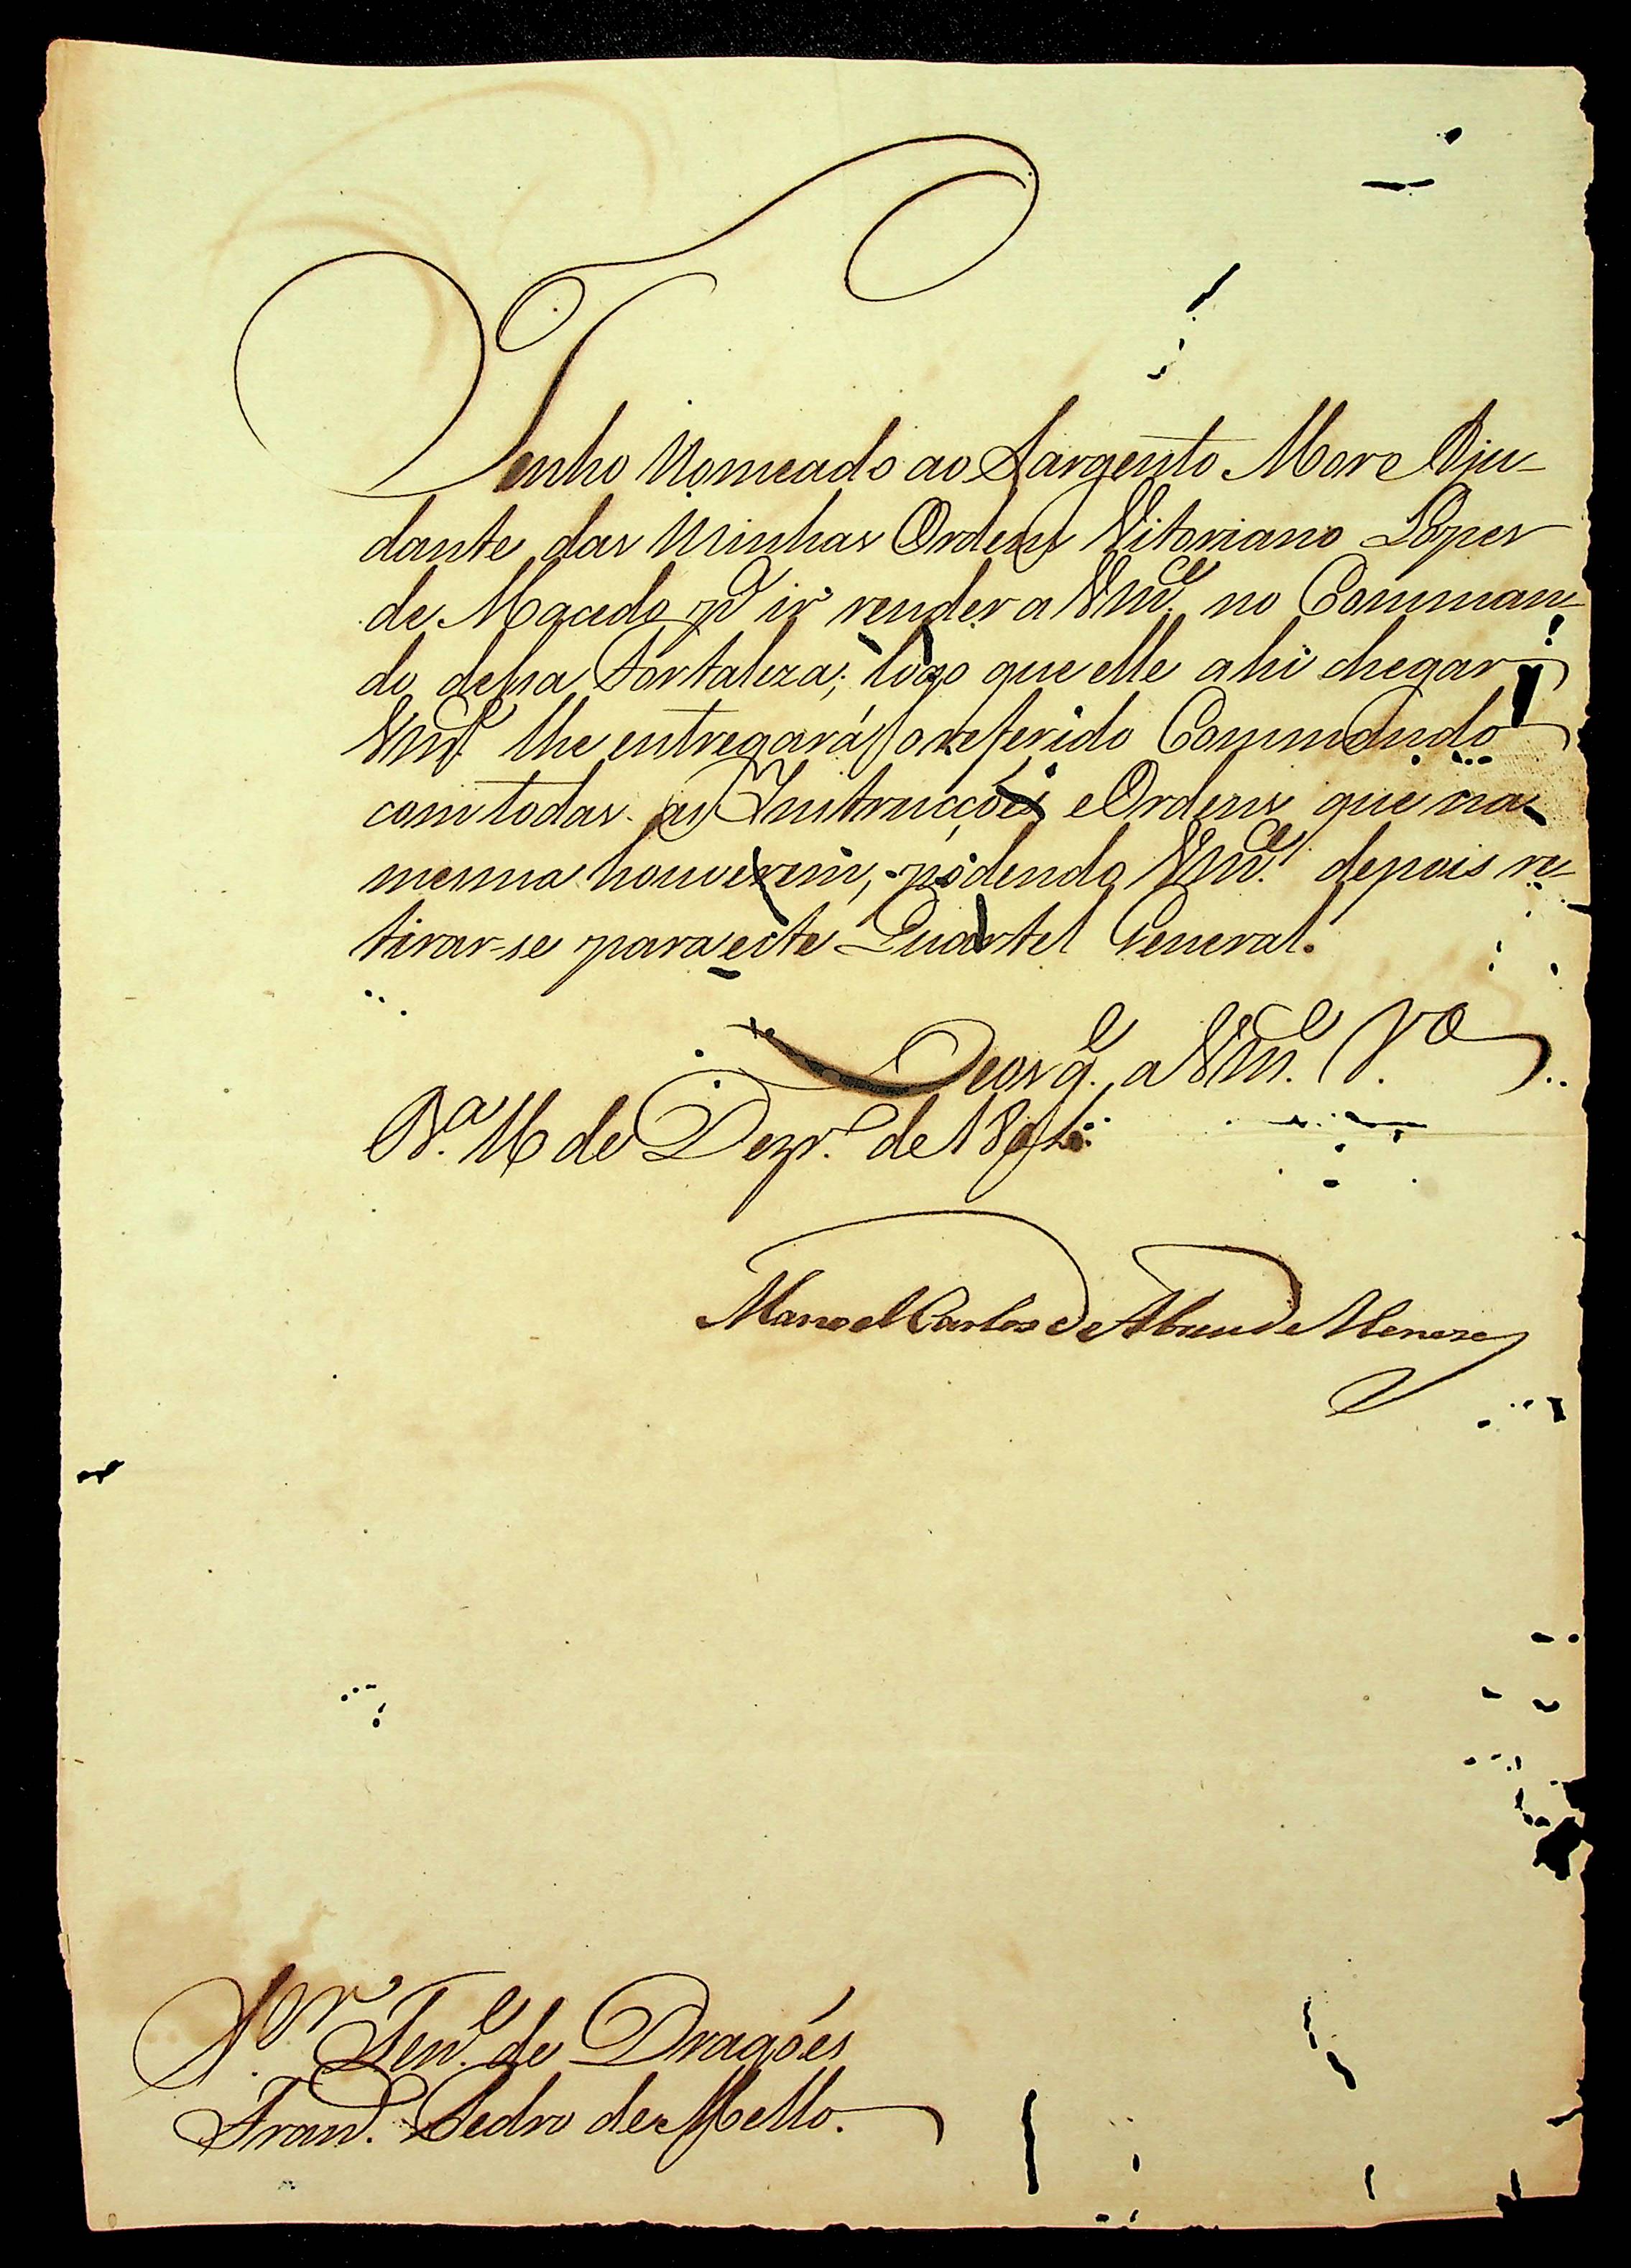 Tenho Nomeado ao Sargento Mor e Aju-
dante das Minhas Ordens Vitoriano Lopes
de Macedo pª ir render a Vmce. no Comman-
do dessa Fortaleza; logo que elle ahi chegar
Vmce. lhe entregará o referido Commando
com todas as Instrucçoẽs e Ordens que na
mesma houverem, podendo Vmce. depois re-
tirar-se para este Quartel General.
Deos gᵉ. a Vmᶜᵉ.
Vª. 16 de Dezrº. de
Manoel Carlos de Abreu de Meneze
Sōr Tenᵉ. de Dragoẽs
Franᶜᵒ. Pedro de Mello.